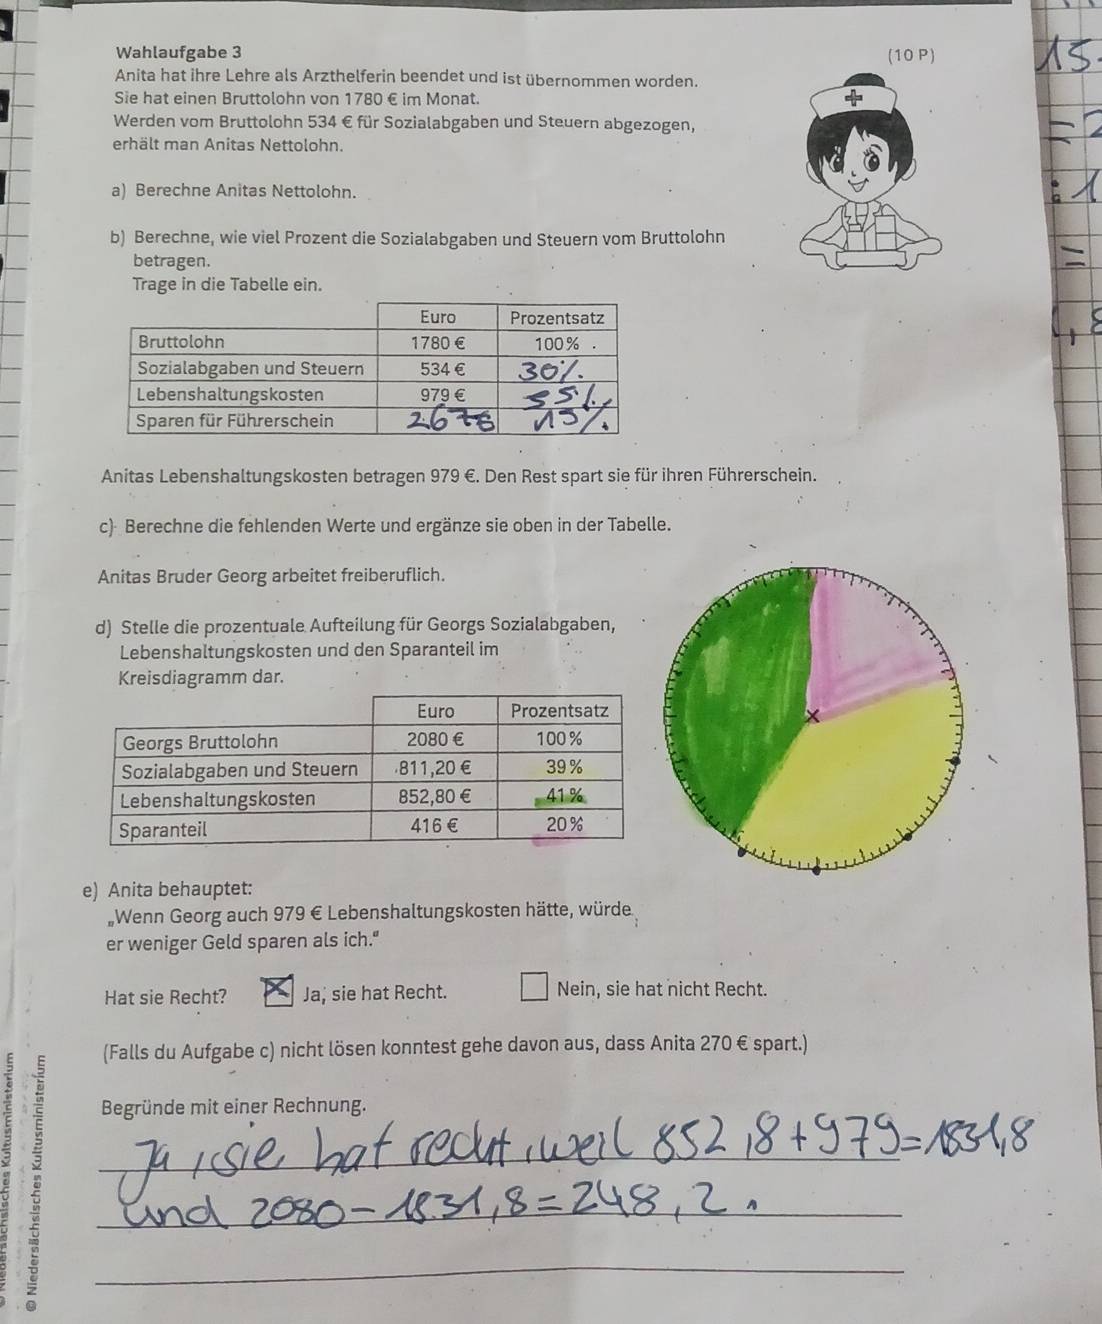 Wahlaufgabe 3
(10 P)
Anita hat ihre Lehre als Arzthelferin beendet und ist übernommen worden.
Sie hat einen Bruttolohn von 1780 € im Monat.
Werden vom Bruttolohn 534 € für Sozialabgaben und Steuern abgezogen,
erhält man Anitas Nettolohn.
a) Berechne Anitas Nettolohn.
b) Berechne, wie viel Prozent die Sozialabgaben und Steuern vom Bruttolohn
betragen.
Trage in die Tabelle ein.
Euro Prozentsatz
Bruttolohn 1780 € 100 %
Sozialabgaben und Steuern 534 € 30%
Lebenshaltungskosten 979 € 55%
Sparen für Führerschein 267€ 15%
Anitas Lebenshaltungskosten betragen 979 €. Den Rest spart sie für ihren Führerschein.
c) Berechne die fehlenden Werte und ergänze sie oben in der Tabelle.
Anitas Bruder Georg arbeitet freiberuflich.
d) Stelle die prozentuale Aufteilung für Georgs Sozialabgaben,
Lebenshaltungskosten und den Sparanteil im
Kreisdiagramm dar.
Euro Prozentsatz
Georgs Bruttolohn 2080 € 100 %
Sozialabgaben und Steuern 811,20 € 39 %
Lebenshaltungskosten 852,80 € 41 %
Sparanteil 416 € 20 %
e) Anita behauptet:
„Wenn Georg auch 979 € Lebenshaltungskosten hätte, würde
er weniger Geld sparen als ich."
Hat sie Recht? Ja, sie hat Recht. Nein, sie hat nicht Recht.
(Falls du Aufgabe c) nicht lösen konntest gehe davon aus, dass Anita 270 € spart.)
Begründe mit einer Rechnung.
Ja, sie hat recht, weil 852,8+979=1831,8
und 2080-1831,8=248,2.
© Niedersächsisches Kultusministerium
Niedersächsisches Kultusministerium
15